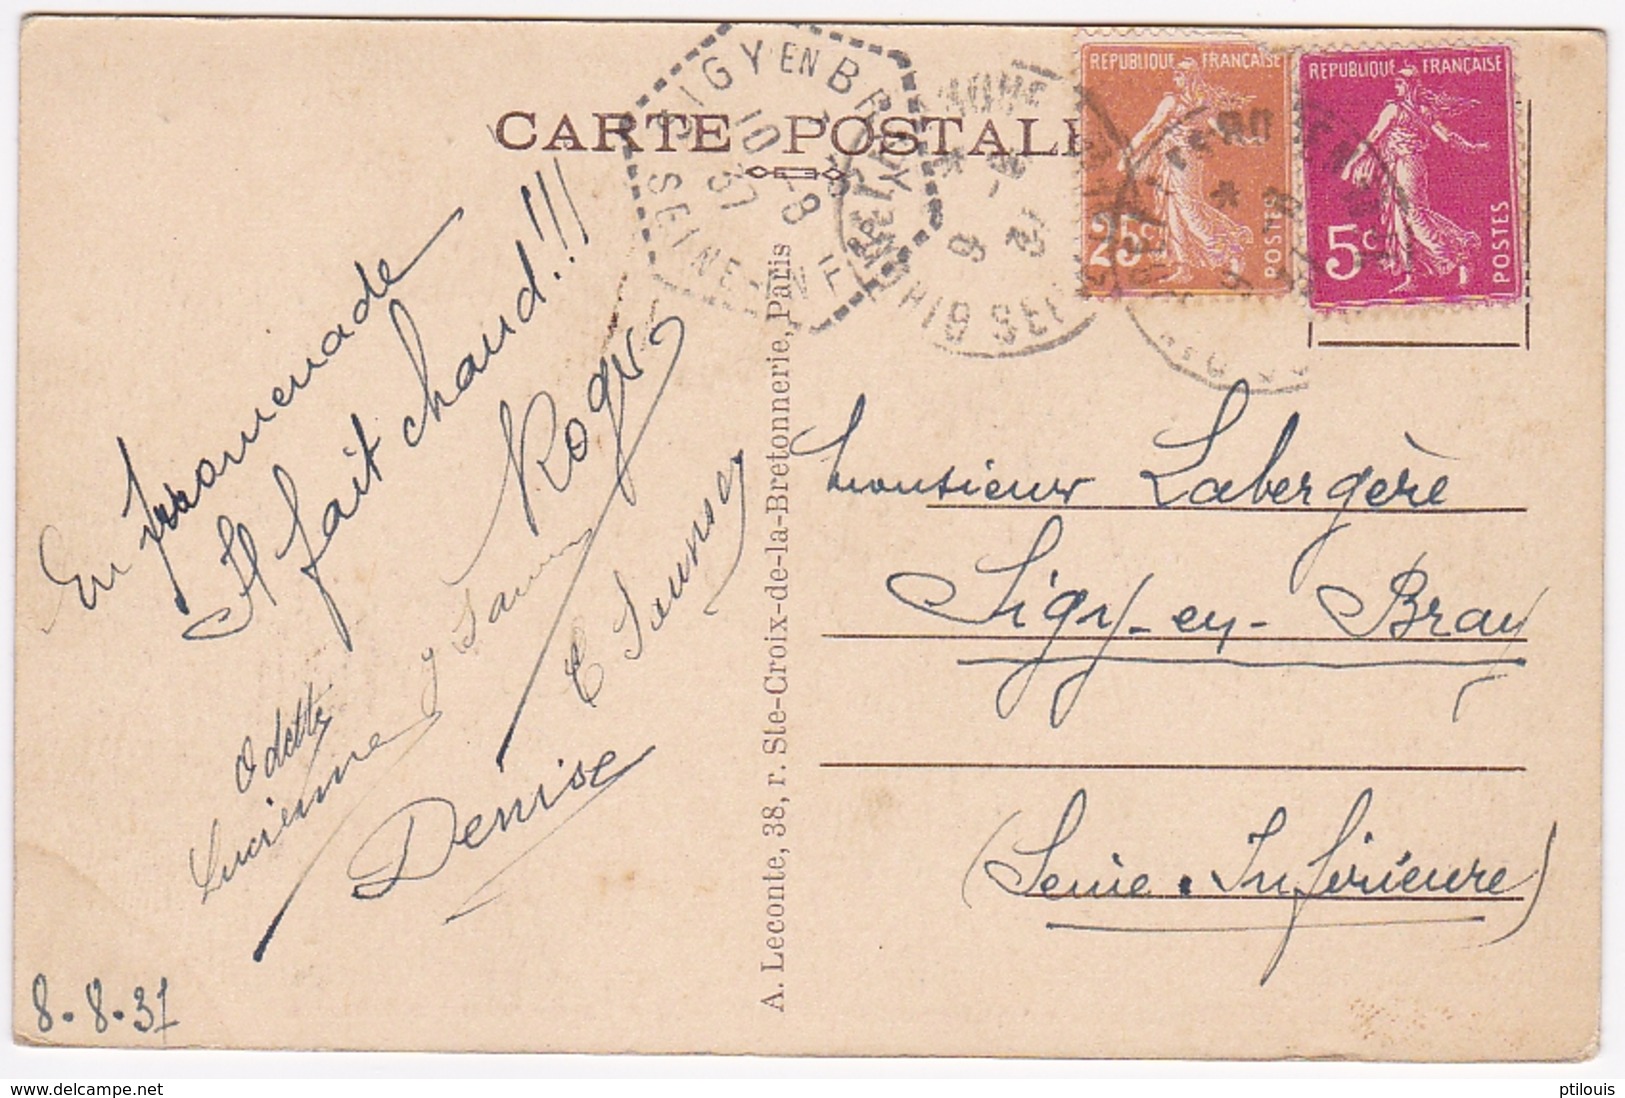 CARTE POSTALE
RÉPUBLIQUE FRANÇAISE
25c
POSTES
RÉPUBLIQUE FRANÇAISE
5c
POSTES
SIGY EN BRAY
10 - 8
37
SEINE-INFRE
En promenade
Il fait chaud!!!
Roger
Odette
Lucienne
Denise
8.8.37
A. Leconte, 38, r. Ste-Croix-de-la-Bretonnerie, Paris
Monsieur Labergère
Sigy-en-Bray
(Seine-Inférieure)
delcampe.net
ptilouis